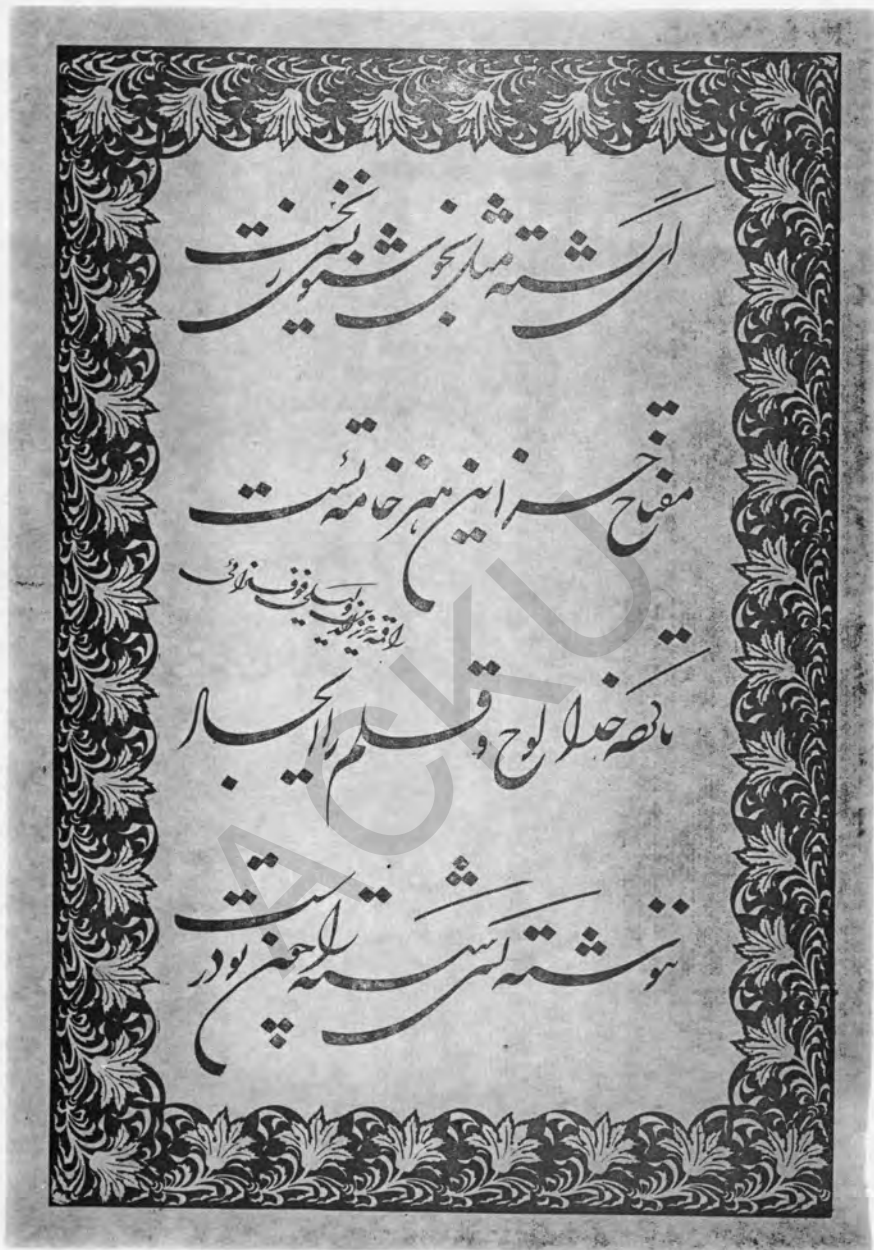 ای گشته مثل بخوشنویسی ز نخست
مفتاح خزاین هنر خامه تست
راقمه عزیزالدین وکیلی فوفلزائی
تا کرده خدا لوح و قلم را ایجاد
ننوشته کسی شکسته را چون تو درست
ACKU